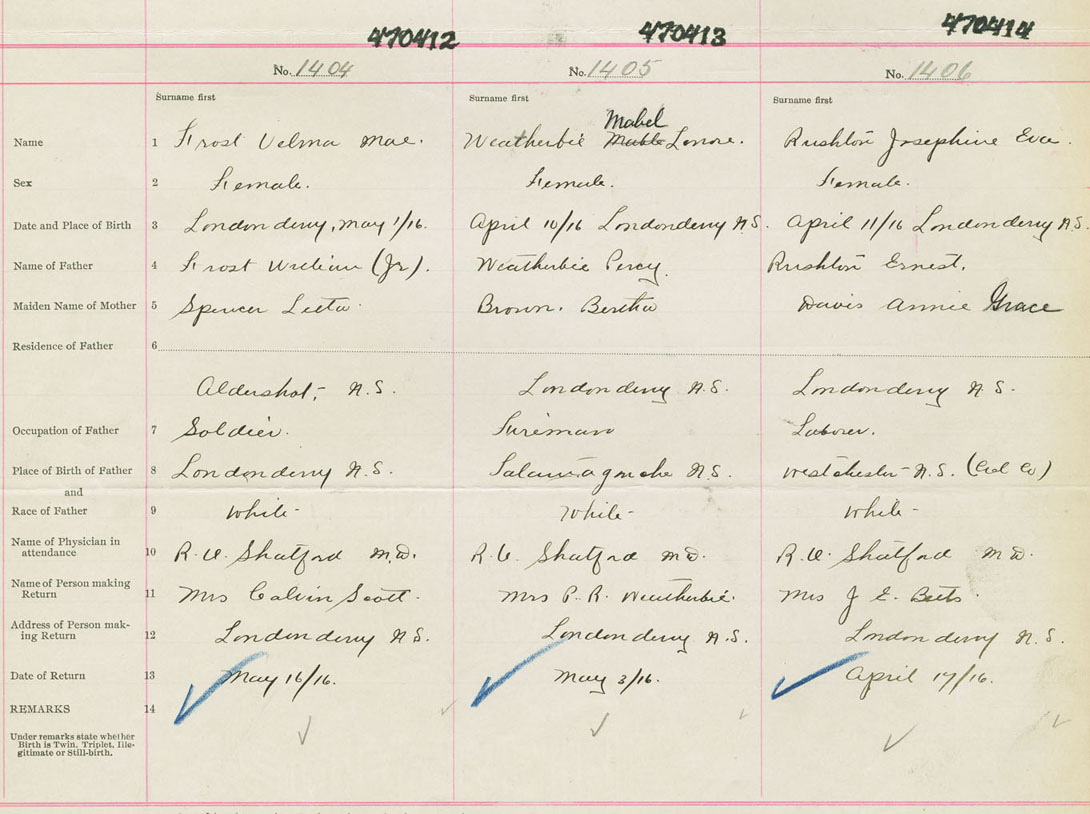 470412 470413 470414
No. 1404 No. 1405 No. 1406
Surname first Surname first Surname first
Mabel
Name 1 Frost Velma Mae. Weatherbie Mable Lenore. Rushton Josephine Eva.
Sex 2 Female. Female. Female.
Date and Place of Birth 3 Londonderry, May 1/16. April 10/16 Londonderry N.S. April 11/16 Londonderry N.S.
Name of Father 4 Frost William (Jr). Weatherbie Percy. Rushton Ernest.
Maiden Name of Mother 5 Spencer Leeta Brown. Bertha Davis Annie Grace
Residence of Father 6
Aldershot, N.S. Londonderry N.S. Londonderry N.S.
Occupation of Father 7 Soldier. Fireman Laborer.
Place of Birth of Father 8 Londonderry N.S. N.S. Westchester N.S. (Col Co)
and
Race of Father 9 White White White
Name of Physician in
attendance 10 R. V. Shatford M.D. R. V. Shatford M.D. R. V. Shatford M.D.
Name of Person making
Return 11 Mrs Calvin Scott. Mrs P. R. Weatherbie. Mrs J. E. Betts.
Address of Person mak-
ing Return 12 Londonderry N.S. Londonderry N.S. Londonderry N.S.
Date of Return 13 May 16/16. May 3/16. April 17/16.
REMARKS 14
Under remarks state whether
Birth is Twin, Triplet, Ille-
gitimate or Still-birth.